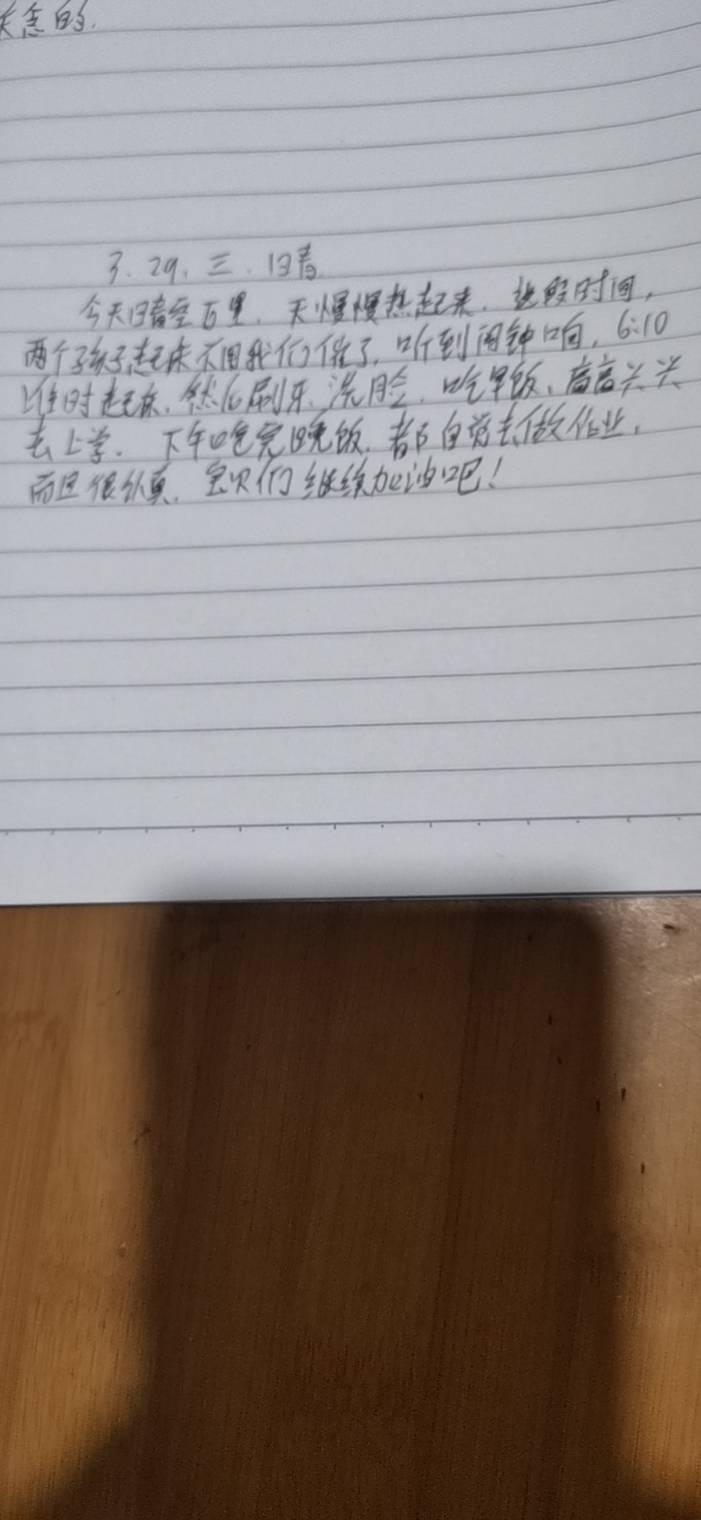 念的.
3.29.三.晴
今天晴空万里.天慢慢热起来.这段时间,
两个孩子起床不用我们催了,听到闹钟响,6:10
准时起床.然后刷牙.洗脸.吃早饭.高高兴兴
去上学.下午吃完晚饭.都自觉去做作业.
而且很认真.宝贝们继续加油吧!